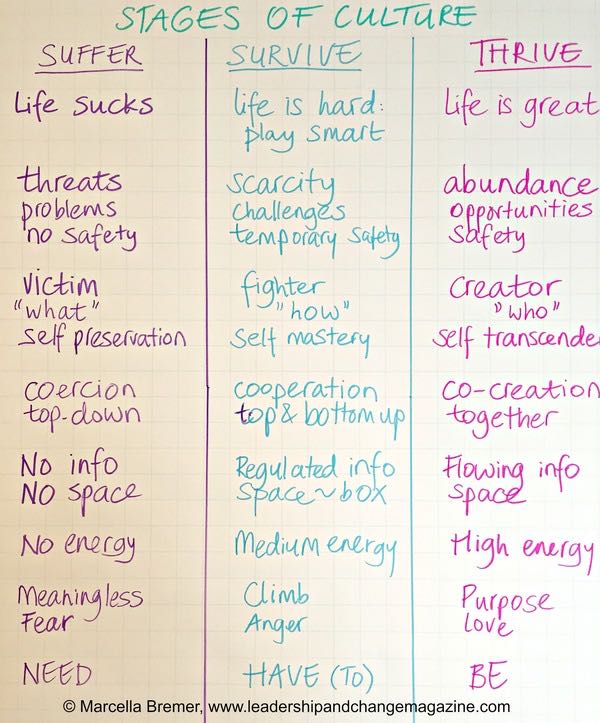 STAGES OF CULTURE
SUFFER SURVIVE THRIVE
Life sucks life is hard: Life is great
play smart
threats scarcity abundance
problems challenges opportunities
no safety temporary safety safety
victim fighter creator
"what" "how" "who"
self preservation self mastery self transcende
coercion cooperation co-creation
top-down top & bottom up together
No info Regulated info Flowing info
NO space space~box space
No energy Medium energy High energy
Meaningless Climb Purpose
Fear Anger Love
NEED HAVE (TO) BE
© Marcella Bremer, www.leadershipandchangemagazine.com